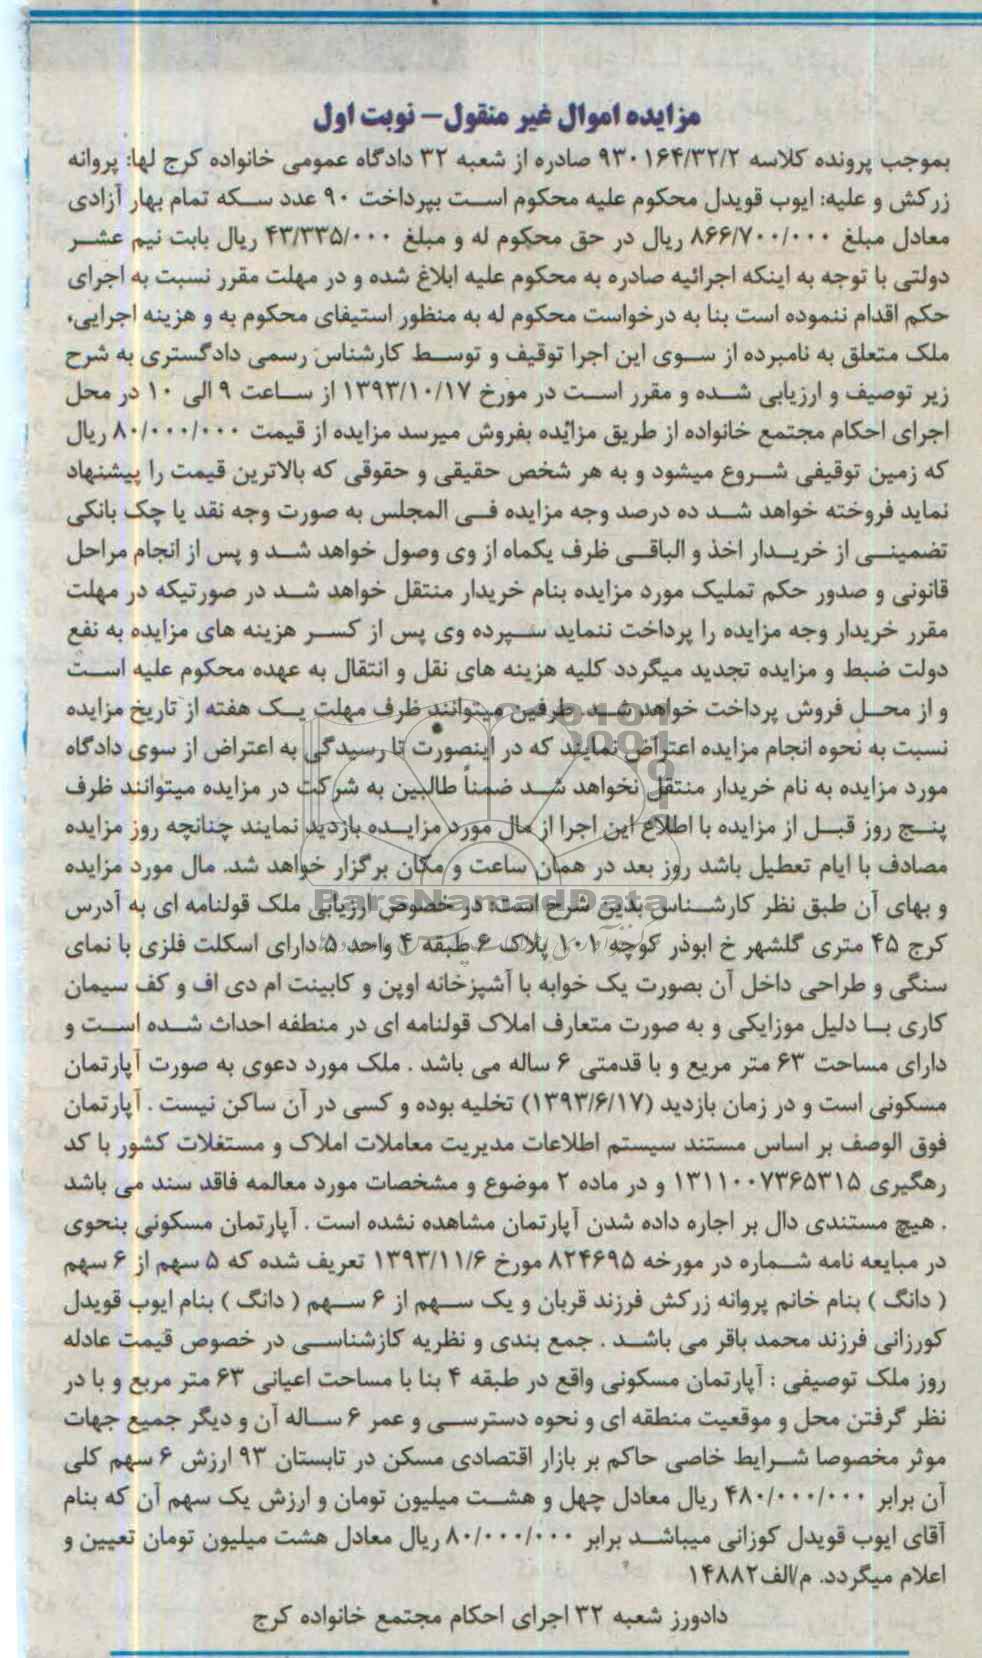 مزایده اموال غیر منقول- نوبت اول
بموجب پرونده کلاسه ۹۳۰۱۶۴/۳۲/۲ صادره از شعبه ۳۲ دادگاه عمومی خانواده کرج لها: پروانه
زرکش و علیه: ایوب قویدل محکوم علیه محکوم است بپرداخت ۹۰ عدد سکه تمام بهار آزادی
معادل مبلغ ۸۶۶/۷۰۰/۰۰۰ ریال در حق محکوم له و مبلغ ۴۳/۳۳۵/۰۰۰ ریال بابت نیم عشر
دولتی با توجه به اینکه اجرائیه صادره به محکوم علیه ابلاغ شده و در مهلت مقرر نسبت به اجرای
حکم اقدام ننموده است بنا به درخواست محکوم له به منظور استیفای محکوم به و هزینه اجرایی،
ملک متعلق به نامبرده از سوی این اجرا توقیف و توسط کارشناس رسمی دادگستری به شرح
زیر توصیف و ارزیابی شده و مقرر است در مورخ ۱۳۹۳/۱۰/۱۷ از ساعت ۹ الی ۱۰ در محل
اجرای احکام مجتمع خانواده از طریق مزایده بفروش میرسد مزایده از قیمت ۸۰/۰۰۰/۰۰۰ ریال
که زمین توقیفی شروع میشود و به هر شخص حقیقی و حقوقی که بالاترین قیمت را پیشنهاد
نماید فروخته خواهد شد ده درصد وجه مزایده فی المجلس به صورت وجه نقد یا چک بانکی
تضمینی از خریدار اخذ و الباقی ظرف یکماه از وی وصول خواهد شد و پس از انجام مراحل
قانونی و صدور حکم تملیک مورد مزایده بنام خریدار منتقل خواهد شد در صورتیکه در مهلت
مقرر خریدار وجه مزایده را پرداخت ننماید سپرده وی پس از کسر هزینه های مزایده به نفع
دولت ضبط و مزایده تجدید میگردد کلیه هزینه های نقل و انتقال به عهده محکوم علیه است
و از محل فروش پرداخت خواهد شد. طرفین میتوانند ظرف مهلت یک هفته از تاریخ مزایده
نسبت به نحوه انجام مزایده اعتراض نمایند که در اینصورت تا رسیدگی به اعتراض از سوی دادگاه
مورد مزایده به نام خریدار منتقل نخواهد شد ضمناً طالبین به شرکت در مزایده میتوانند ظرف
پنج روز قبل از مزایده با اطلاع این اجرا از مال مورد مزایده بازدید نمایند چنانچه روز مزایده
مصادف با ایام تعطیل باشد روز بعد در همان ساعت و مکان برگزار خواهد شد. مال مورد مزایده
ParsNamadData
و بهای آن طبق نظر کارشناس بدین شرح است: در خصوص ارزیابی ملک قولنامه ای به آدرس
کرج ۴۵ متری گلشهر خ ابوذر کوچه ۱۰۱ پلاک ۶ طبقه ۴ واحد ۵ دارای اسکلت فلزی با نمای
سنگی و طراحی داخل آن بصورت یک خوابه با آشپزخانه اوپن و کابینت ام دی اف و کف سیمان
کاری با دلیل موزایکی و به صورت متعارف املاک قولنامه ای در منطقه احداث شده است و
دارای مساحت ۶۳ متر مربع و با قدمتی ۶ ساله می باشد . ملک مورد دعوی به صورت آپارتمان
مسکونی است و در زمان بازدید (۱۳۹۳/۶/۱۷) تخلیه بوده و کسی در آن ساکن نیست . آپارتمان
فوق الوصف بر اساس مستند سیستم اطلاعات مدیریت معاملات املاک و مستغلات کشور با کد
رهگیری ۱۳۱۱۰۰۷۳۶۵۳۱۵ و در ماده ۲ موضوع و مشخصات مورد معالمه فاقد سند می باشد
. هیچ مستندی دال بر اجاره داده شدن آپارتمان مشاهده نشده است . آپارتمان مسکونی بنحوی
در مبایعه نامه شماره در مورخه ۸۲۴۶۹۵ مورخ ۱۳۹۳/۱۱/۶ تعریف شده که ۵ سهم از ۶ سهم
( دانگ ) بنام خانم پروانه زرکش فرزند قربان و یک سهم از ۶ سهم ( دانگ ) بنام ایوب قویدل
کورزانی فرزند محمد باقر می باشد . جمع بندی و نظریه کازشناسی در خصوص قیمت عادله
روز ملک توصیفی : آپارتمان مسکونی واقع در طبقه ۴ بنا با مساحت اعیانی ۶۳ متر مربع و با در
نظر گرفتن محل و موقعیت منطقه ای و نحوه دسترسی و عمر ۶ ساله آن و دیگر جمیع جهات
موثر مخصوصا شرایط خاصی حاکم بر بازار اقتصادی مسکن در تابستان ۹۳ ارزش ۶ سهم کلی
آن برابر ۴۸۰/۰۰۰/۰۰۰ ریال معادل چهل و هشت میلیون تومان و ارزش یک سهم آن که بنام
آقای ایوب قویدل کوزانی میباشد برابر ۸۰/۰۰۰/۰۰۰ ریال معادل هشت میلیون تومان تعیین و
اعلام میگردد. م/الف۱۴۸۸۲
دادورز شعبه ۳۲ اجرای احکام مجتمع خانواده کرج